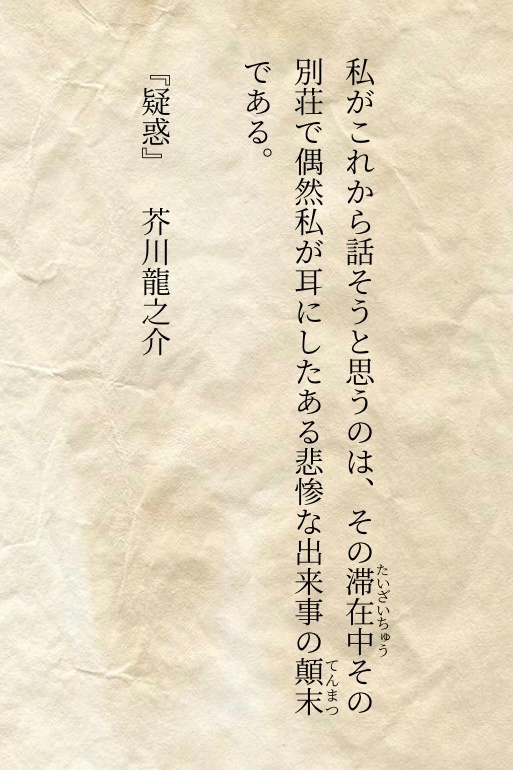 私がこれから話そうと思うのは、その滞在中その
別荘で偶然私が耳にしたある悲惨な出来事の顛末
である。
『疑惑』　芥川龍之介
たいざいちゅう
てんまつ